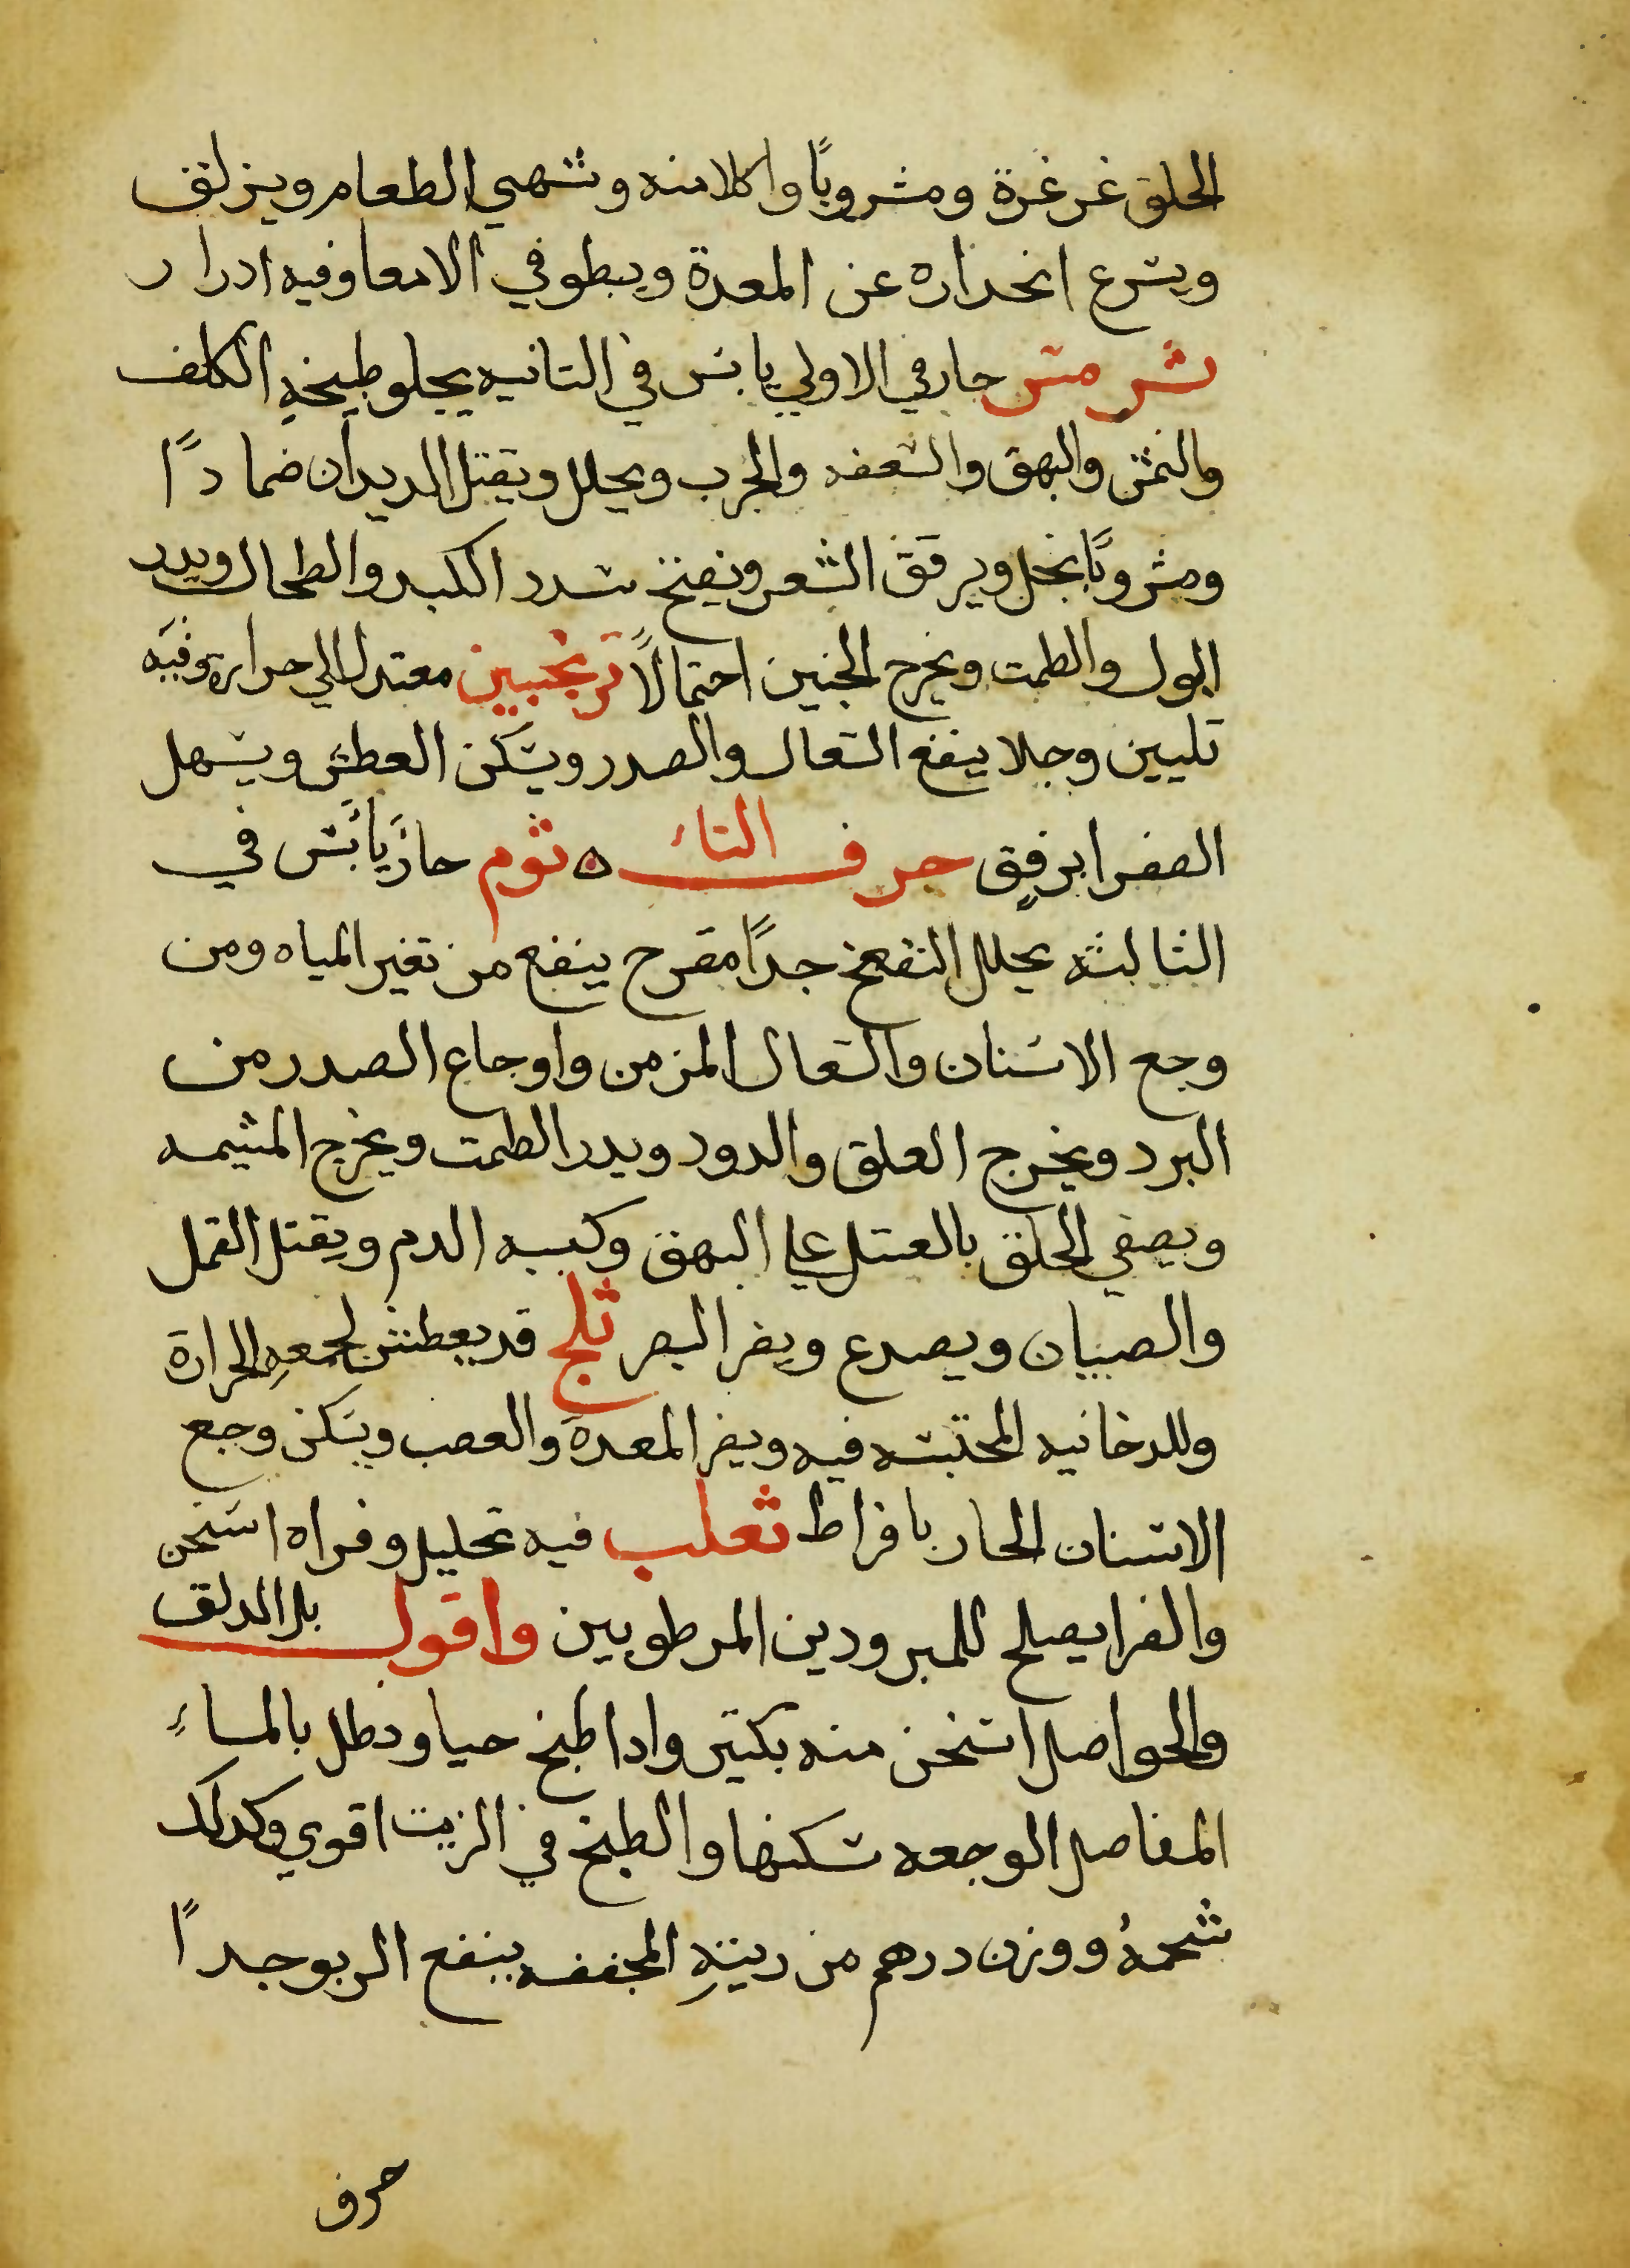 الحلق غرغرة ومشروبًا واكلامنه وتشهي الطعام ويزلق
ويسرع انحداره عن المعدة ويبطو في الامعا وفيه ادرار
ترمس حار في الاولي يابس في التانيه يجلو طبيخه الكلف
والنمش والبهق والسعفه والجرب ويحلل ويقتل الديدان ضمادًا
ومشروبًا بخل ويرقق الشعر ويفتح سدد الكبد والطحال ويدر
البول والطمت ويخرج الجنين احتمالًا ترنجبين معتدل الي حرارة وفيه
تليين وجلا ينفع السعال والصدر ويسكن العطش ويسهل
الصفرا برفق حرف الثاء ثوم حار يابس في
الثالثه يحلل النفخ جدًا مقرح ينفع من تغير المياه ومن
وجع الاسنان والسعال المزمن واوجاع الصدر من
البرد ويخرج العلق والدود ويدر الطمت ويخرج المشيمه
ويصفي الحلق بالعسل علي البهق وكبيه الدم ويقتل القمل
والصيبان ويصدع ويضر البصر ثلج قد يعطش لجمعهِ الحرارة
وللدخانيه المحتبسه فيه ويضر المعدة والعصب ويسكن وجع
الاسنان الحار بافراط ثعلب فيه تحليل وفراه اسخن
والفرا يصلح للمبرودين المرطوبين واقول بل الدلق
والحواصل اسخن منه بكتير وادا طبخ حيا ونطل بالماءِ
المفاصل الوجعه سكنها والطبخ في الزيت اقوي وكدلك
شحمهُ ووزن درهم من ريتهِ المجففه ينفع الربو جدًا
حرف